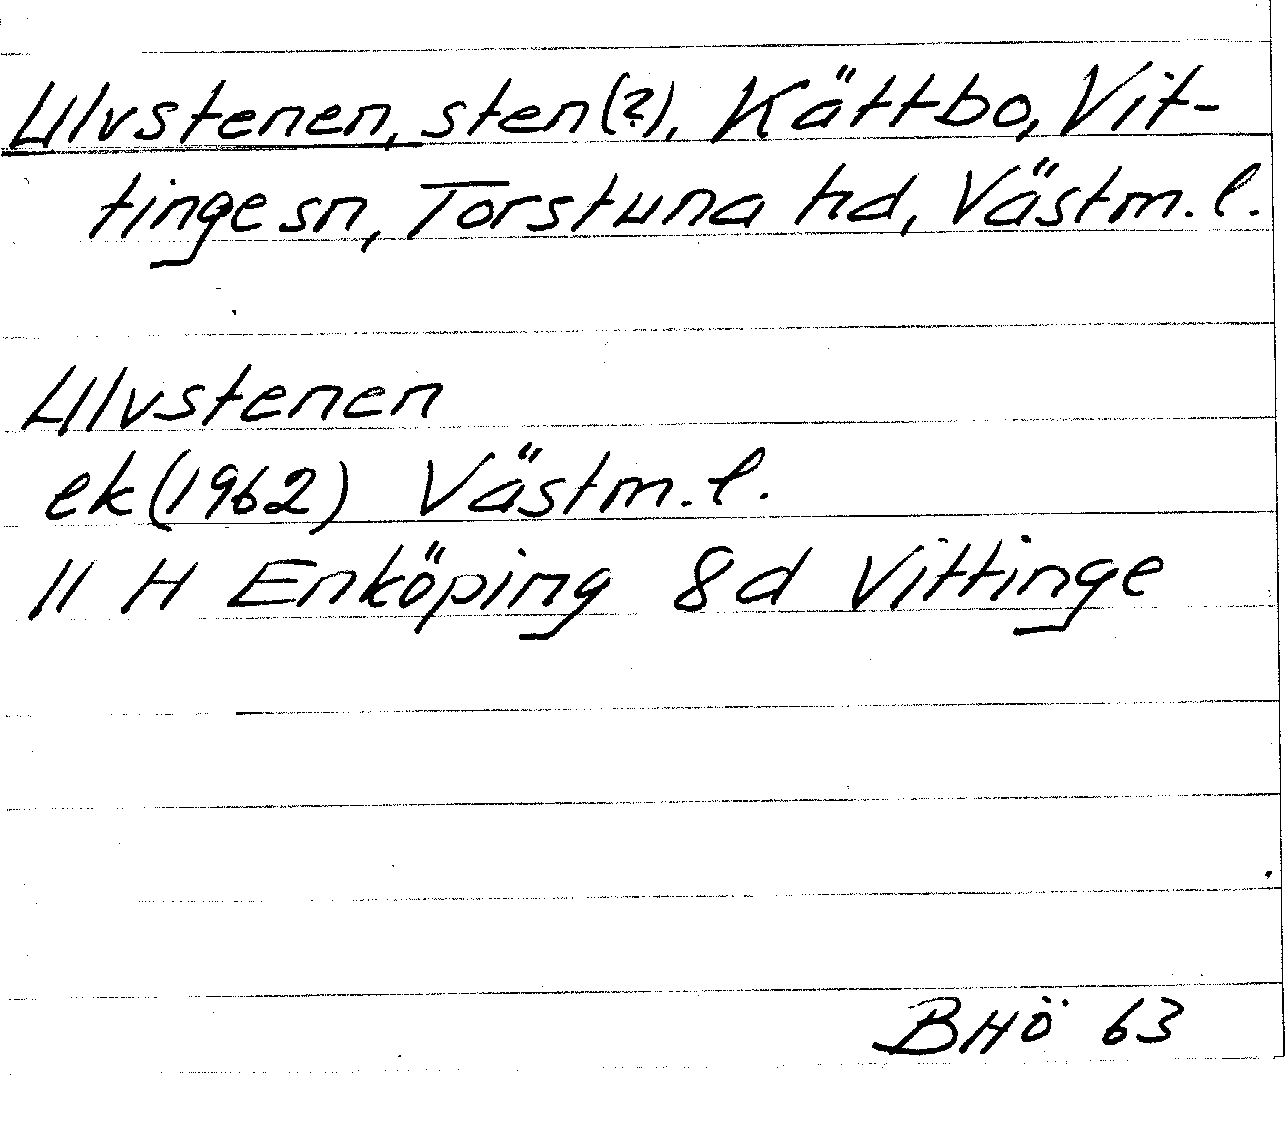 Ulvstenen, sten(?), Kättbo, Vit-
tinge sn, Torstuna hd, Västm. l.
Ulvstenen
ek(1962) Västm. l.
11 H Enköping 8d Vittinge
BHÖ 63